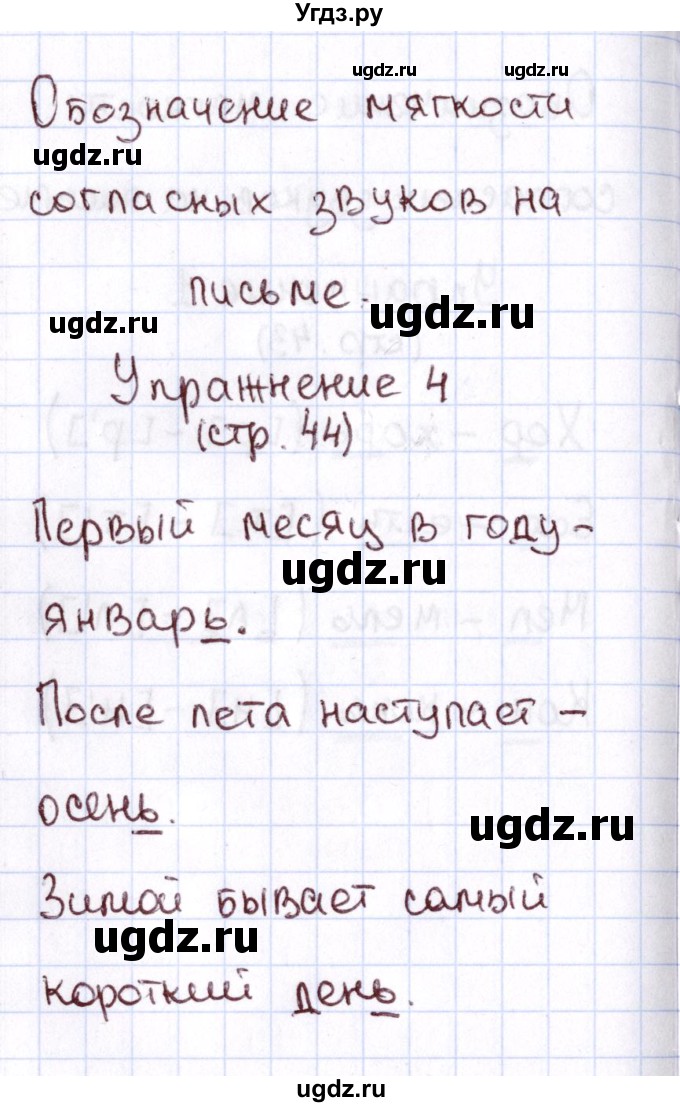 Угдз.ру
ugdz.ru ugdz.ru
Обозначение мягкости
ugdz.ru
согласных звуков на
письме.
ugdz.ru ugdz.ru
Упражнение 4
(стр. 44)
Первый месяц в году –
ugdz.ru
январь.
После лета наступает –
осень.
ugdz.ru
Зимой бывает самый
ugdz.ru
короткий день.
ugdz.ru